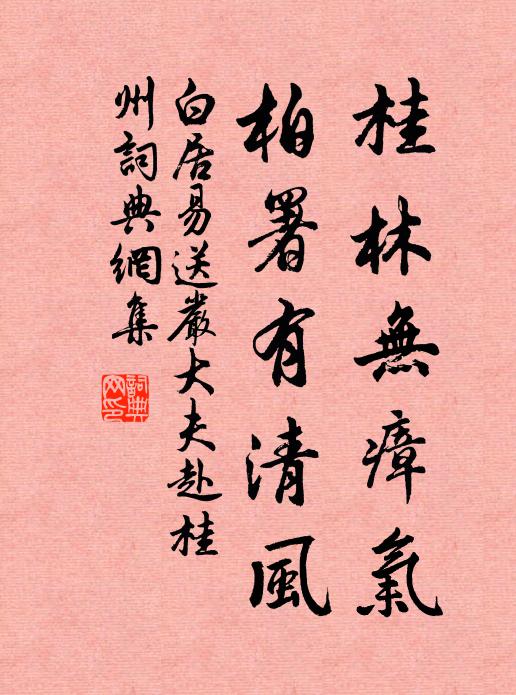 桂林無瘴氣
柏署有清風
白居易送嚴大夫赴桂
州詞典網集
詞典網印